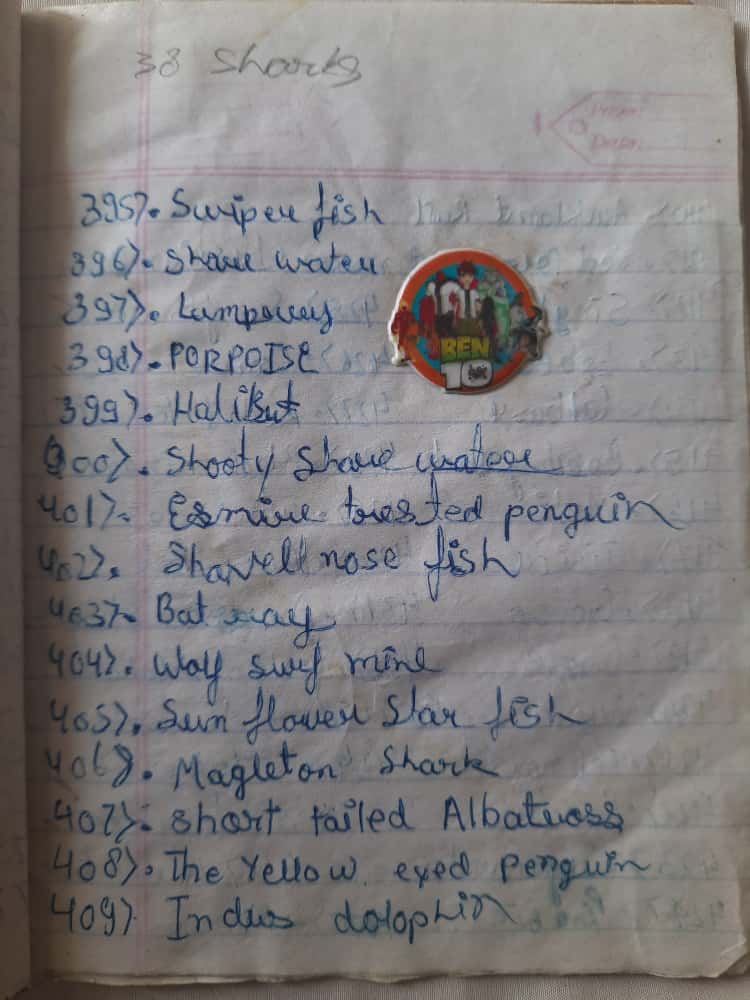 38 Sharks
395). Swiper fish
396). Share water
397). Lamperey
398). PORPOISE
399). Halibut
400). Shooty Share water
401). Esmire trested penguin
402). Shavell nose fish
403). Bat ray
404). Wolf surf mine
405). Sun flower Star fish
406). Magleton Shark
407). Short tailed Albatross
408). The Yellow eyed Penguin
409) Indus dolophin
BEN
10